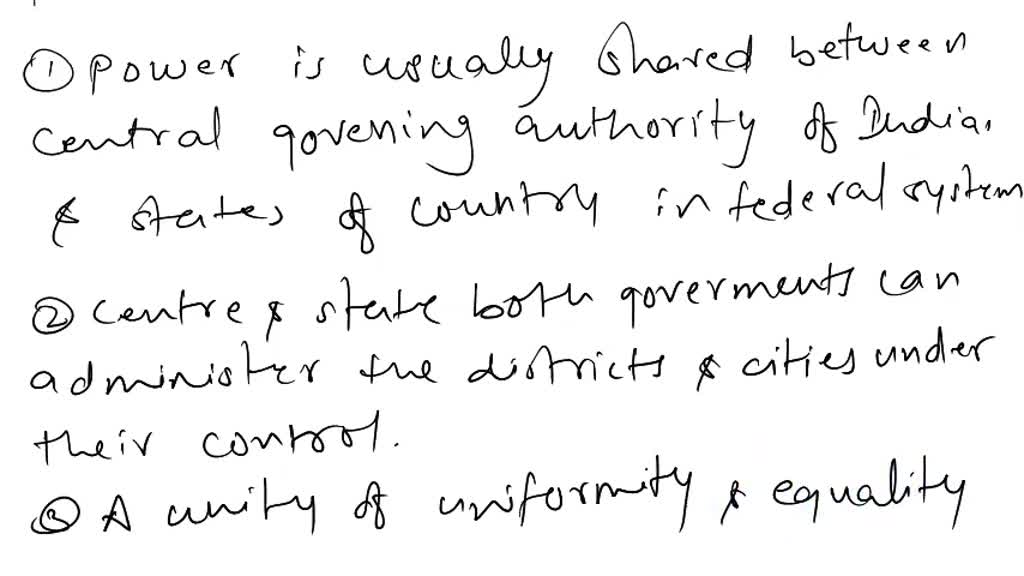 ① Power is usually shared between
central govening authority of India.
& states of country in federal system
② Centre & state both goverments can
administer the districts & cities under
their control.
③ A unity of uniformity & equality